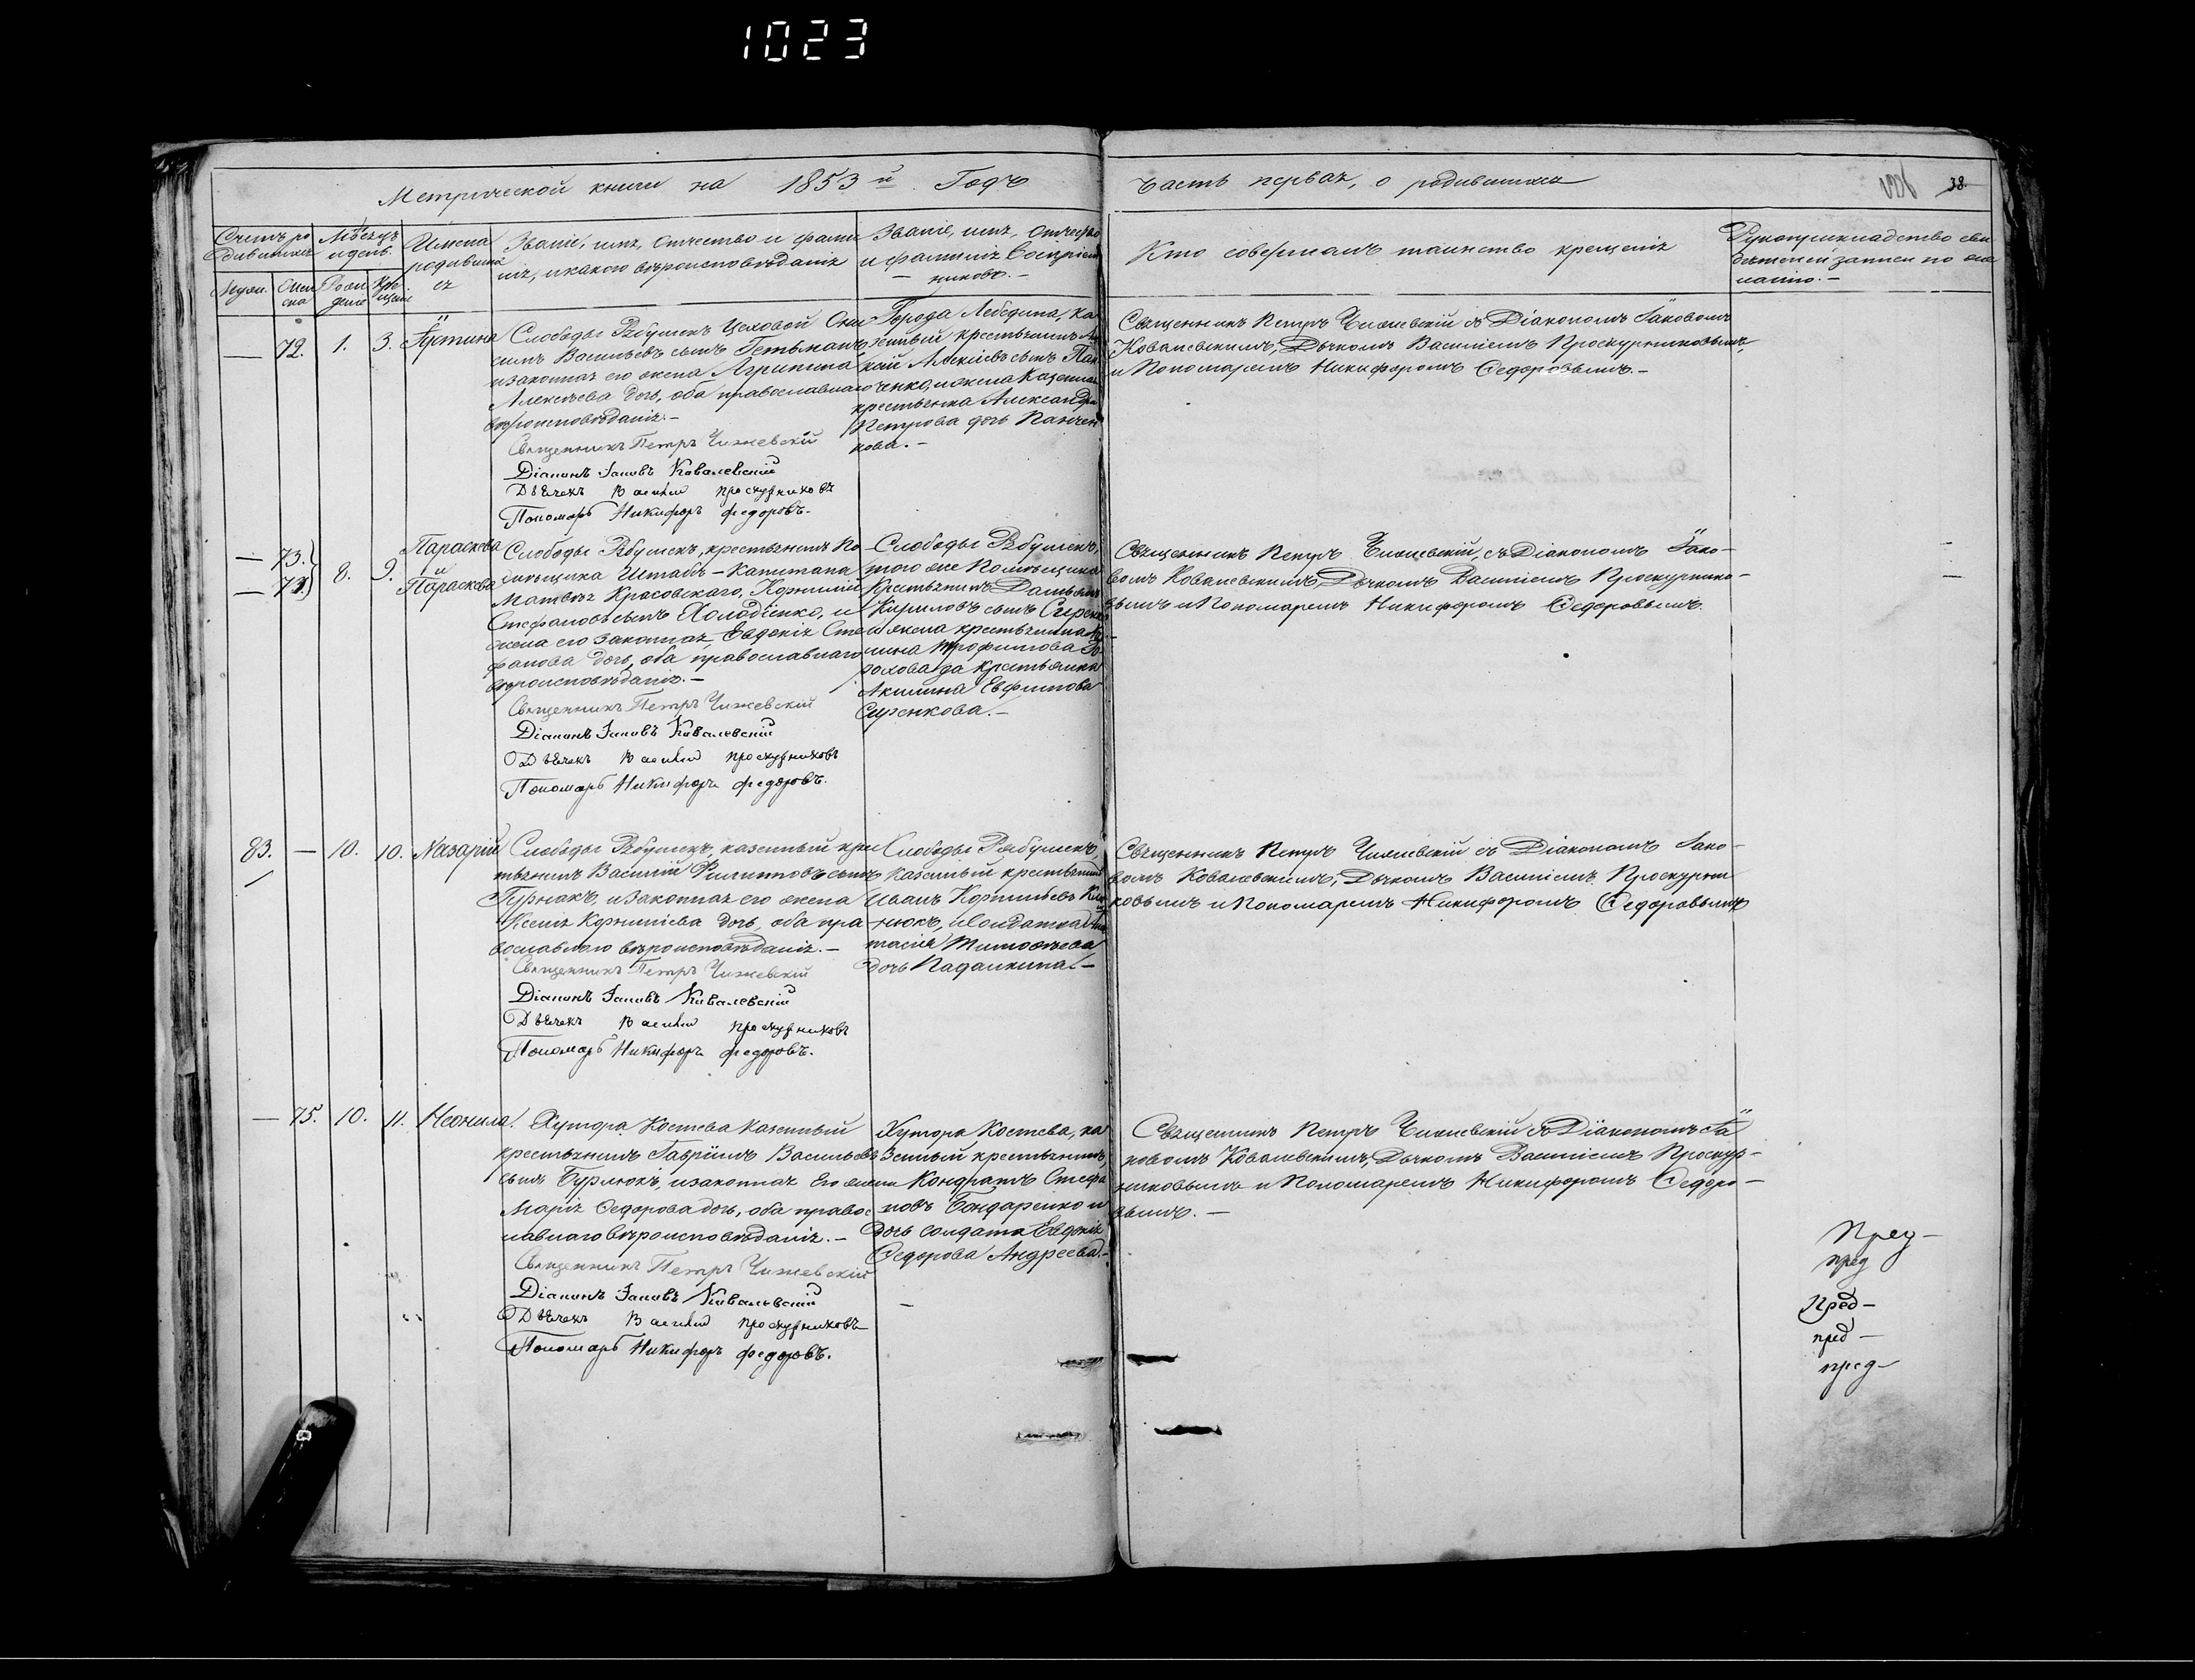 1023
Метрической книги на 1853й Годъ
Часть первая, о родившихся
38.
Счетъ ро
дившихся
Мѣсяцъ
и день.
Имена
родивших
ся
Званіе, имя, отчество и фами
лія, и какого вѣроисповѣданія
Званіе, имя, отчество
и фамилія Воспріем
никовъ.-
Кто совершалъ таинство крещенія
Рукоприкладство сви
дѣтелей записи по же
ланію.-
Муж.
Жен
ска
Рож
деніе
Кре
щеніе
— 72. 1. 3. Іустина
Слободы Рябушекъ Цеховой Они
симъ Васильевъ сынъ Гетьманъ,
и законная его жена Агрипина
Алексѣева дочь, оба православнаго
вѣроисповѣданія.-
Священникъ Петръ Чижевскій
Діаконъ Іаковъ Ковалевскій
Дьячекъ Василій Проскурниковъ
Пономарь Никифоръ Федоровъ.
Города Лебедина, ка
зенный крестьянинъ
Алексіевъ сынъ Пан
ченко, и жена Казенная
крестьянка Александра
Петрова дочь Панчен
кова.-
Священникъ Петръ Чижевскій съ Діакономъ Іаковомъ
Ковалевскимъ, Дьячкомъ Василіемъ Проскурниковымъ,
и Пономаремъ Никифоромъ Федоровымъ.-
— 73.
— 74.
8. 9.
Параскева
и
Параскева
Слободы Рябушекъ, крестьянинъ По
мѣщика Штабъ-Капитана
Матвѣя Красовскаго, Корнилій
Стефановъ сынъ Холодіенко, и
жена его законная Евдокія Сте
фанова дочь, оба православнаго
вѣроисповѣданія.-
Священникъ Петръ Чижевскій
Діаконъ Іаковъ Ковалевскій
Дьячекъ Василій Проскурниковъ
Пономарь Никифоръ Федоровъ.
Слободы Рябушекъ,
того же Помѣщика
Крестьянинъ
Кириловъ сынъ
и жена крестьянина
Трофимова
да крестьянка
Акилина Евфимова
Сиренкова.-
Священникъ Петръ Чижевскій, съ Діакономъ Іако-
вомъ Ковалевскимъ, Дьячкомъ Василіемъ Проскурнико-
вымъ и Пономаремъ Никифоромъ Федоровымъ.
83. — 10. 10. Назарій
Слободы Рябушекъ, казенный крес
тьянинъ Василій Филиповъ сынъ
и законная его жена
Ксенія Корниліева дочь, оба пра
вославнаго вѣроисповѣданія.-
Священникъ Петръ Чижевскій
Діаконъ Іаковъ Ковалевскій
Дьячекъ Василій Проскурниковъ
Пономарь Никифоръ Федоровъ.
Слободы Рябушекъ,
Казенный крестьянинъ
Иванъ Корниліевъ
нюкъ, и Солдатка Анас
тасія Тимофѣева
дочь Падалкина.-
Священникъ Петръ Чижевскій съ Діакономъ Іако-
вомъ Ковалевскимъ, Дьячкомъ Василіемъ Проскурни
ковымъ и Пономаремъ Никифоромъ Федоровымъ
— 75. 10. 11. Неонила.
Хутора Костева Казенный
крестьянинъ Гавріилъ Васильевъ
сынъ Бурлюкъ, и законная его жена
Марія Федорова дочь, оба правос
лавнаго вѣроисповѣданія.-
Священникъ Петръ Чижевскій
Діаконъ Іаковъ Ковалевскій
Дьячекъ Василій Проскурниковъ
Пономарь Никифоръ Федоровъ.
Хутора Костева, ка
зенный крестьянинъ,
Кондратъ Стефа
новъ Бондаренко и
дочь солдата Евдокія
Федорова Андреева.-
Священникъ Петръ Чижевскій съ Діакономъ Іа
ковомъ Ковалевскимъ, Дьячкомъ Василіемъ Проскур-
никовымъ и Пономаремъ Никифоромъ Федоро-
вымъ.-
Пред-
пред
Пред-
пред-
пред-